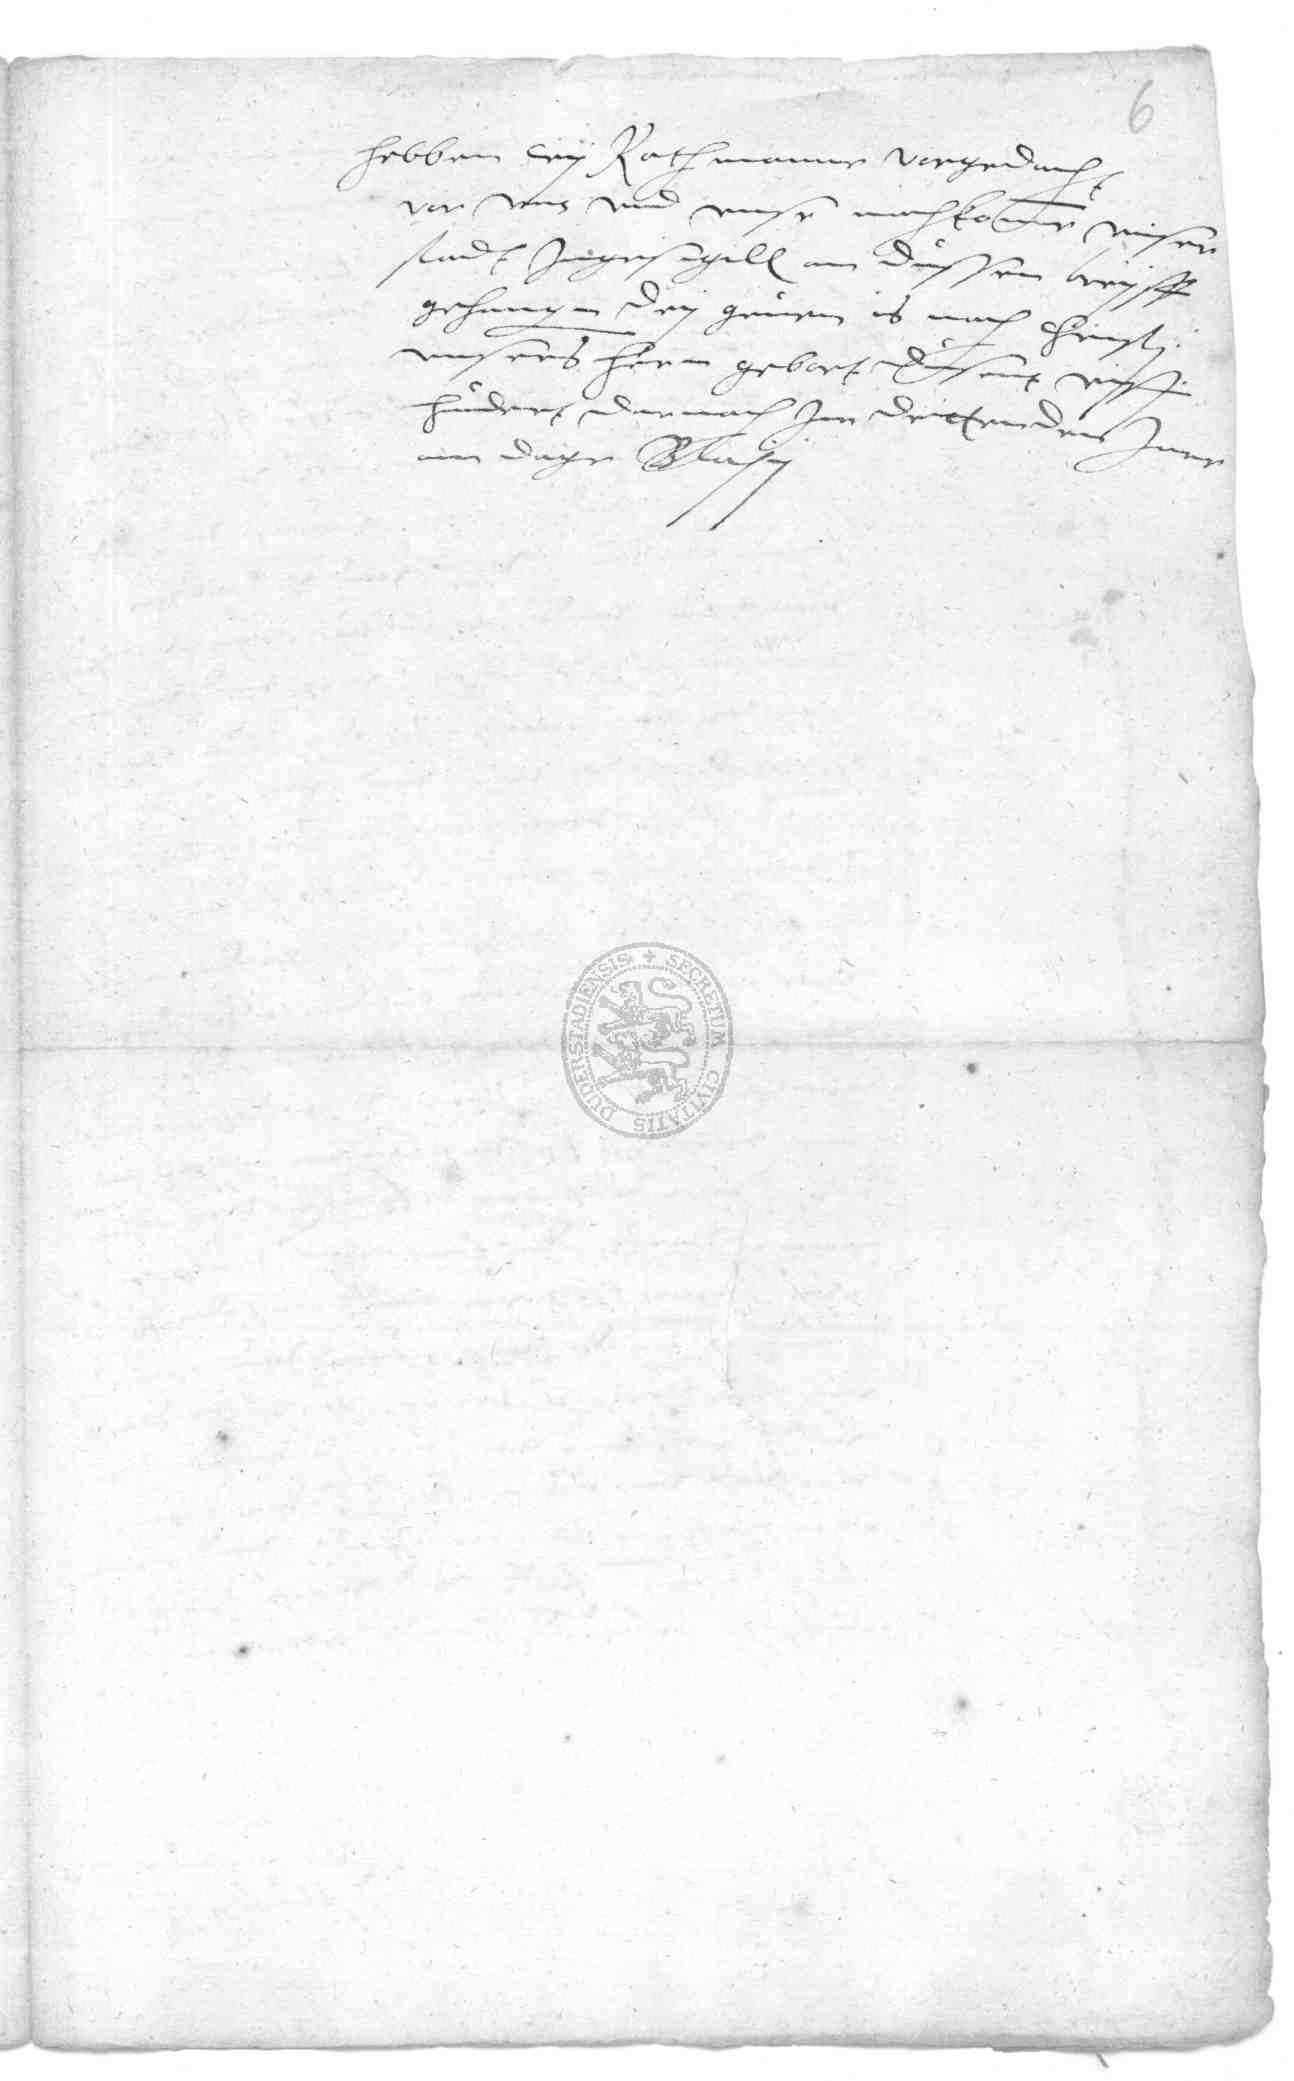 6
hebben wy Rathmanne vorgedacht
vor uns und unse nachkome unser
stadt Ingesigell an dussen breyff
gehangen Dey geuen is nach Christi
unsers hern gebort Dusent viff
hundert darnach Im drittenden Jare
am dage Blasij
SECRETUM CIVITATIS DUDERSTADIENSIS